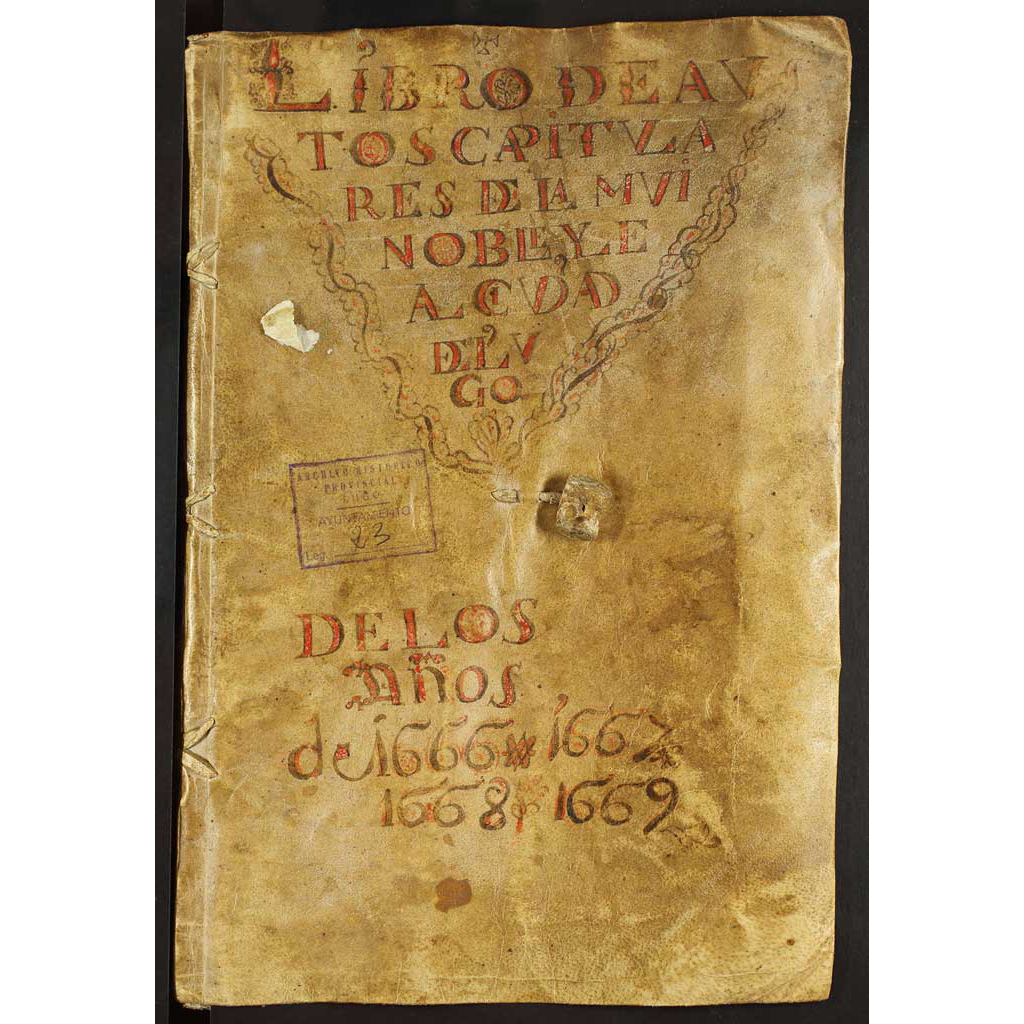 LIBRO DE AV
TOS CAPITVLA
RES DE LA MVI
NOBLE Y LE
AL CVDAD
DE LV
GO
ARCHIVO HISTORICO
PROVINCIAL
LUGO
AYUNTAMIENTO
Leg. 23
DE LOS
Años
de 1666 1667
1668 y 1669